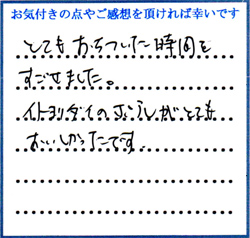 お気付きの点やご感想を頂ければ幸いです
とてもおちついた時間を
すごせました。
イトヨリダイのポワレがとても
おいしかったです.